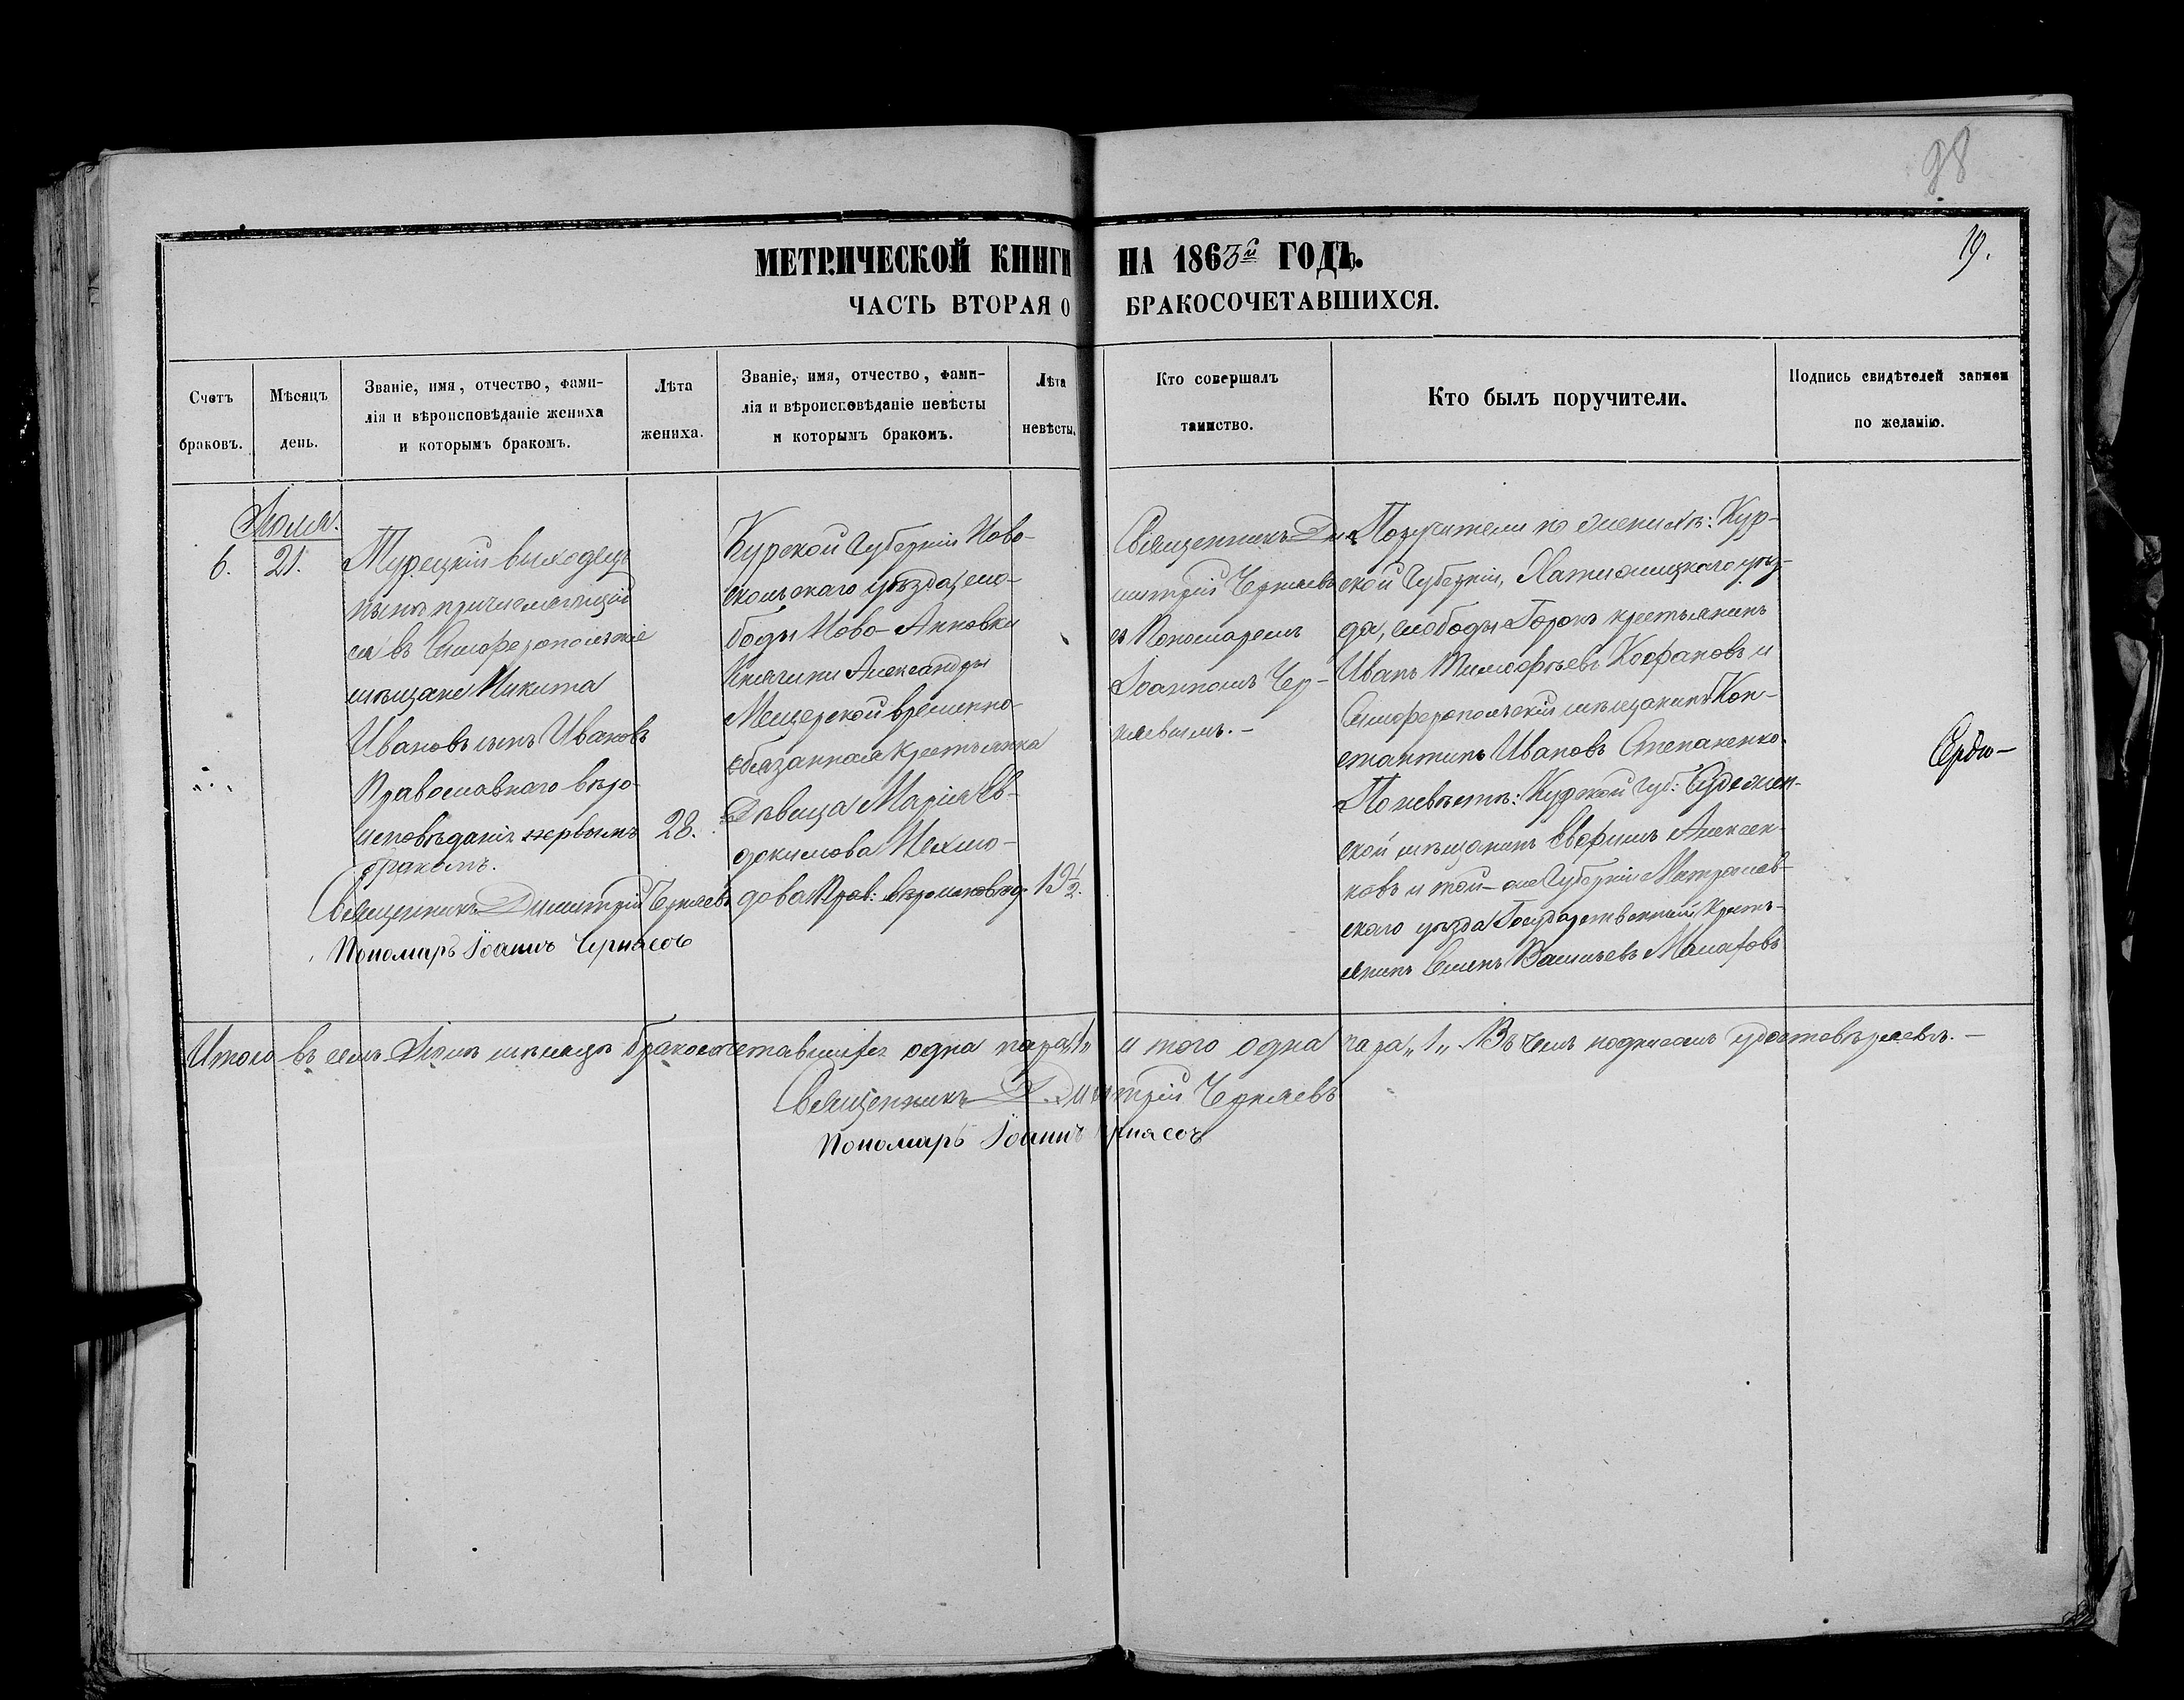 98
19.
МЕТРИЧЕСКОЙ КНИГИ НА 1863й ГОДЪ.
ЧАСТЬ ВТОРАЯ О БРАКОСОЧЕТАВШИХСЯ.
Счетъ
браковъ.
Мѣсяцъ
день.
Званіе, имя, отчество, фами-
лія и вѣроисповѣданіе жениха
и которымъ бракомъ.
Лѣта
жениха.
Званіе, имя, отчество, фами-
лія и вѣроисповѣданіе невѣсты
и которымъ бракомъ.
Лѣта
невѣсты.
Кто совершалъ
таинство.
Кто былъ поручители.
Подпись свидѣтелей записи
по желанію.
6.
21.
Турецкій выходецъ
нынѣ причисляющій
ся въ Симферопольскіе
мѣщане Никита
Ивановъ сынъ Ивановъ
Православнаго вѣро-
исповѣданія первымъ
бракомъ.
28.
Священникъ Димитрій Черняевъ
Пономарь Іоаннъ Черняевъ
Курской Губерніи Ново-
скольскаго уѣзда, сло-
боды Ново-Анновки
Княгини Александры
Мещерской временно-
обязанная крестьянка
Дѣвица Марія Ев-
докимова
дова Прав: вѣроисповѣд.
19½.
Священникъ Ди
митрій Черняевъ
съ Пономаремъ
Іоанномъ Чер-
няевымъ.-
Поручители по женихѣ: Кур-
ской Губерніи, уѣз-
да, слободы крестьянинъ
Иванъ Тимофѣевъ и
Симферопольскій мѣщанинъ Кон-
стантинъ Ивановъ Степаненко.
По невѣстѣ: Курской Губ:
ской мѣщанинъ Ефимъ Алексен-
ковъ и той-же Губерніи
скаго уѣзда Государственный Кресть-
янинъ Васильевъ
Итого въ семъ мѣсяцѣ бракосочетавшихся одна пара „1„ и того одна пара „1„ Въ чемъ подписомъ удостовѣряемъ.-
Священникъ Димитрій Черняевъ
Пономарь Іоаннъ Черняевъ